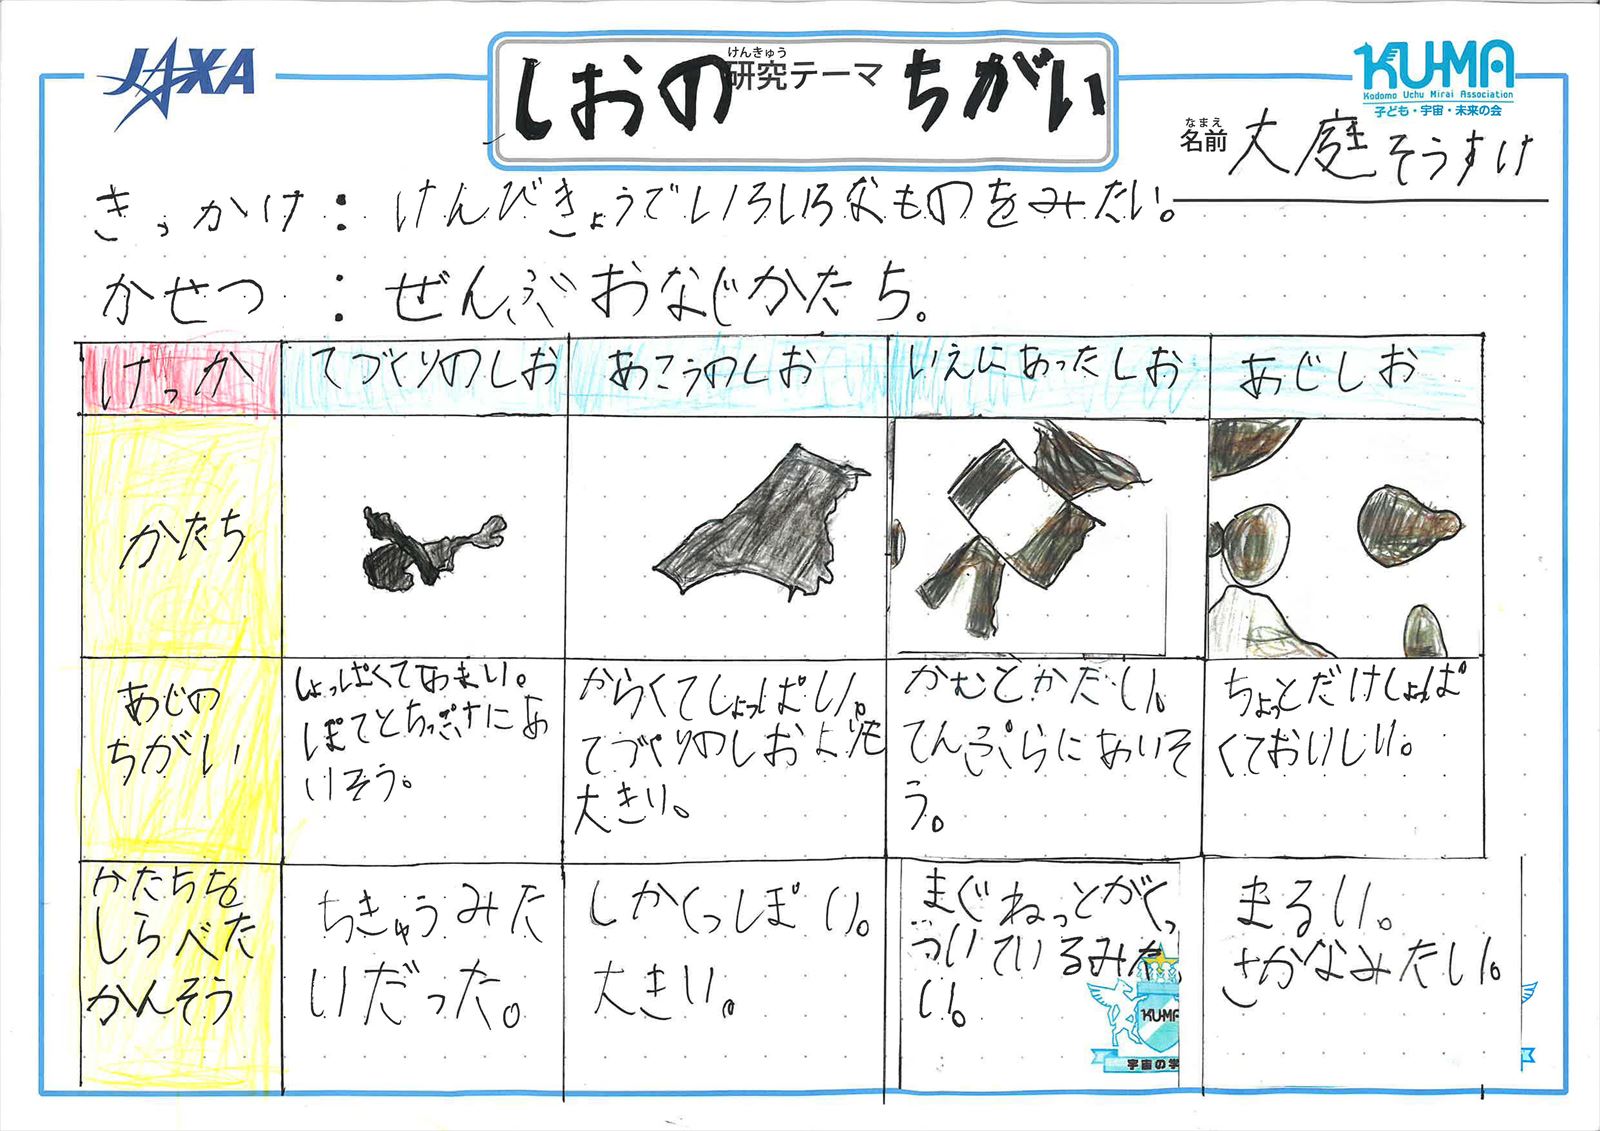 JAXA
けんきゅう
研究テーマ
しおの ちがい
KU-MA
Kodomo Uchu Mirai Association
子ども・宇宙・未来の会
なまえ
名前 大庭そうすけ
きっかけ：けんびきょうでいろいろなものをみたい。
かせつ：ぜんぶおなじかたち。
けっか
てづくりのしお
あこうのしお
いえにあったしお
あじしお
かたち
あじの
ちがい
しょっぱくてあまい。
ぽてとちっぷすにあ
いそう。
からくてしょっぱい。
てづくりのしおよりも
大きい。
かむとかたい。
てんぷらにあいそ
う。
ちょっとだけしょっぱ
くておいしい。
かたちを
しらべた
かんそう
ちきゅうみた
いだった。
しかくっぽい。
大きい。
まぐねっとがくっ
ついているみた
い。
まるい。
さかなみたい。
KU-MA
宇宙の学